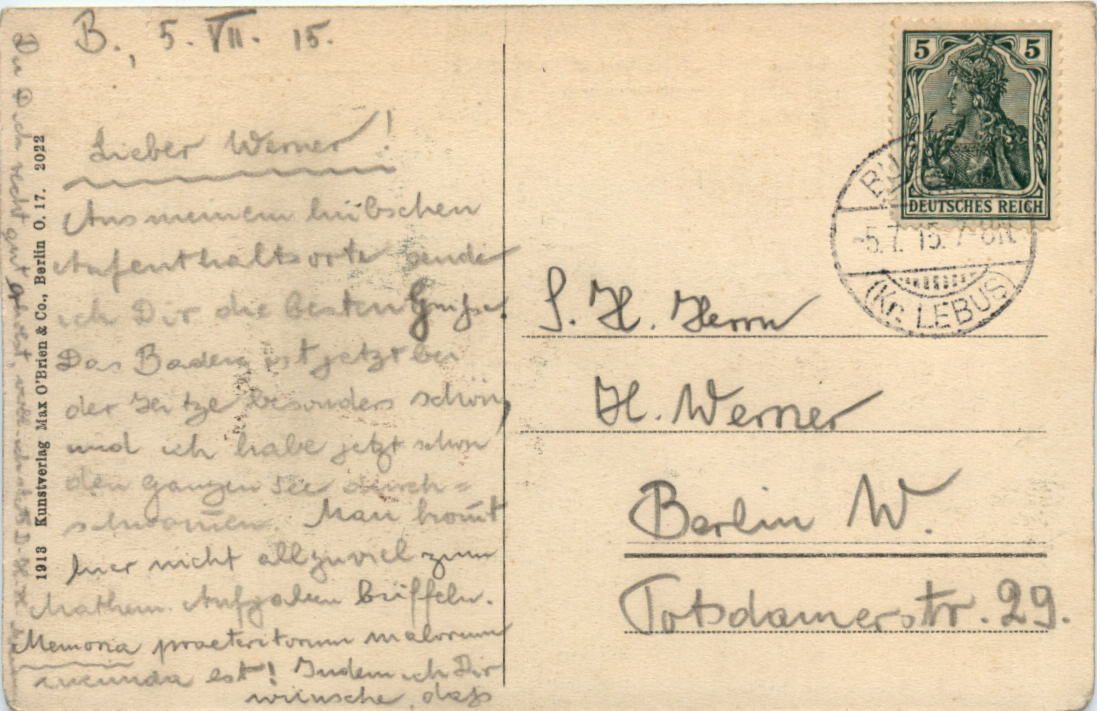 B., 5. VII. 15.
Lieber Werner!
Aus meinem hübschen
Aufenthaltsorte sende
ich Dir die besten Grüße.
Das Baden ist jetzt bei
der Hitze besonders schön,
und ich habe jetzt schon
den ganzen See durch=
schwom̄en. Man kom̄t
hier nicht allzuviel zum
Mathem. Aufgaben büffeln.
Memoria praeteritorum malorum
iucunda est! Indem ich Dir
wünsche, daß
Du Dich recht gut erholst,
1913 Kunstverlag Max O'Brien & Co., Berlin O. 17. 2022
5 5
DEUTSCHES REICH
-5.7.15.7-8N.
(Kr. LEBUS)
S. H. Herrn
H. Werner
Berlin W.
Potsdamerstr. 29.